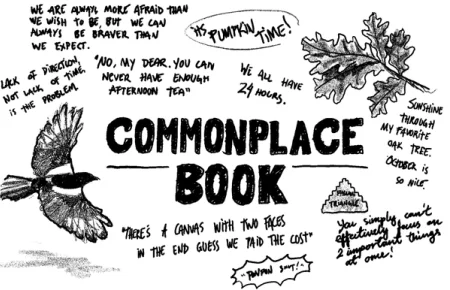 WE ARE ALWAYS MORE AFRAID THAN
WE WISH TO BE, BUT WE CAN
ALWAYS BE BRAVER THAN
WE EXPECT.
"ITS PUMPKIN TIME!
LACK OF DIRECTION,
NOT LACK OF TIME,
IS THE PROBLEM.
"NO, MY DEAR. YOU CAN
NEVER HAVE ENOUGH
AFTERNOON TEA"
WE ALL HAVE
24 HOURS.
SUNSHINE
THROUGH
MY FAVORITE
OAK TREE.
OCTOBER IS
SO NICE.
COMMONPLACE
BOOK
TRIANGLE
"THERE'S A CANVAS WITH TWO FACES
IN THE END GUESS WE PAID THE COST"
You simply can't
effectively focus on
2 important things
at once!